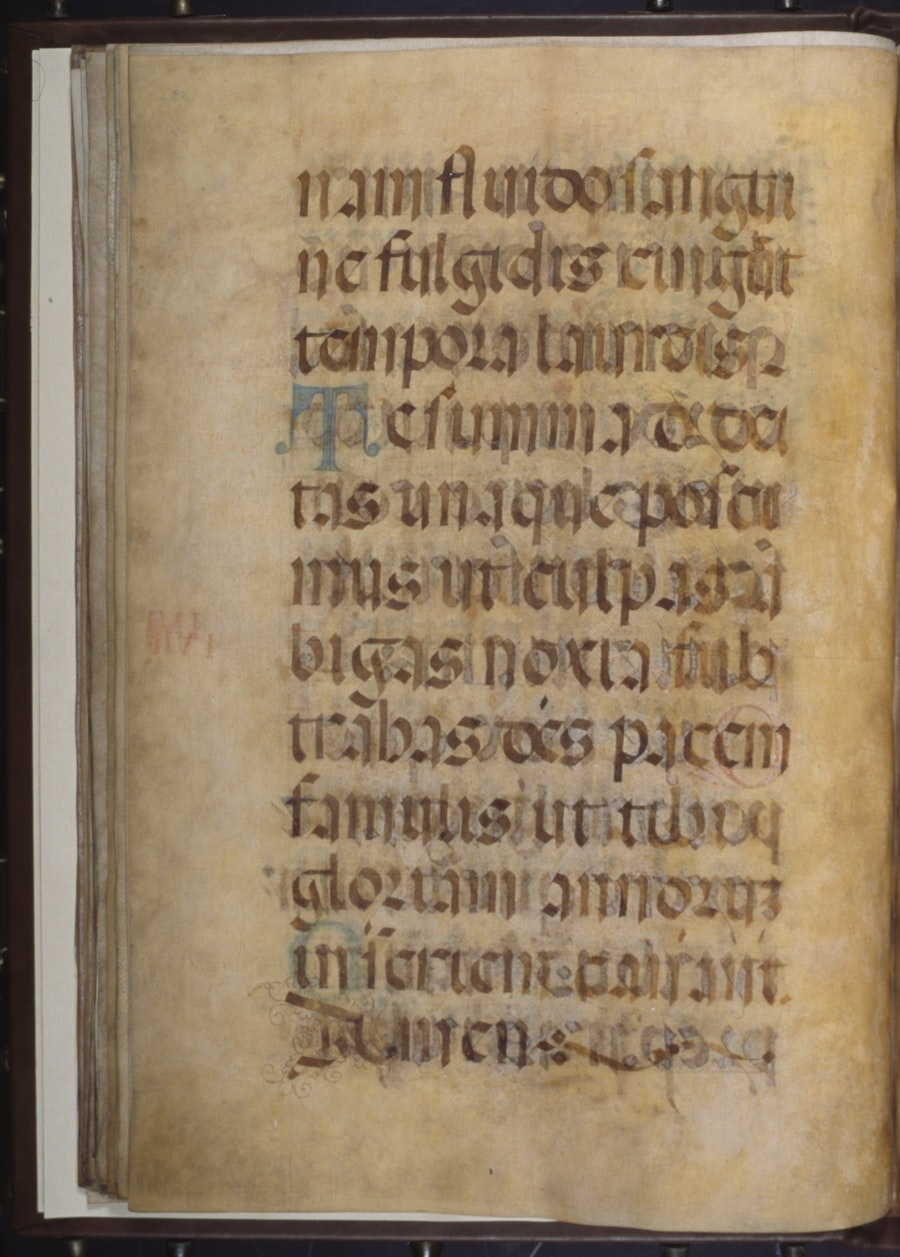 nam fluido sangui
ne fulgidis cingūt
tempora laureolis
Te summa o dei
tas unaque poscu
mus ut culpas a
bigas noxia sub
trahas des pacem
famulis ut tibi
gloriam annorūqꝫ
in seriem canant.
Amen